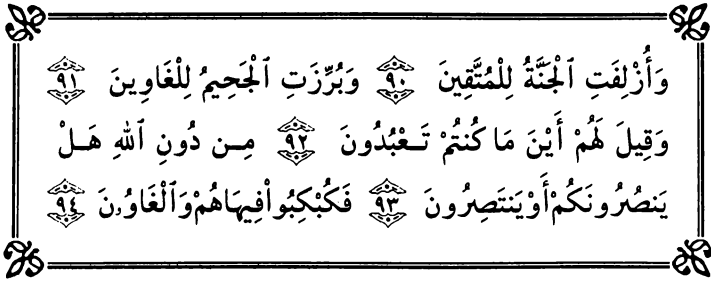 وَأُزْلِفَتِ ٱلْجَنَّةُ لِلْمُتَّقِينَ ٩٠ وَبُرِّزَتِ ٱلْجَحِيمُ لِلْغَاوِينَ ٩١
وَقِيلَ لَهُمْ أَيْنَ مَا كُنتُمْ تَعْبُدُونَ ٩٢ مِن دُونِ ٱللَّهِ هَلْ
يَنصُرُونَكُمْ أَوْ يَنتَصِرُونَ ٩٣ فَكُبْكِبُوا۟ فِيهَا هُمْ وَٱلْغَاوُۥنَ ٩٤